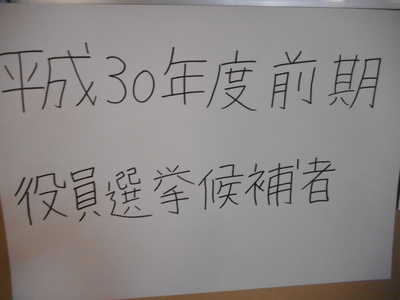 平成30年度前期
役員選挙候補者